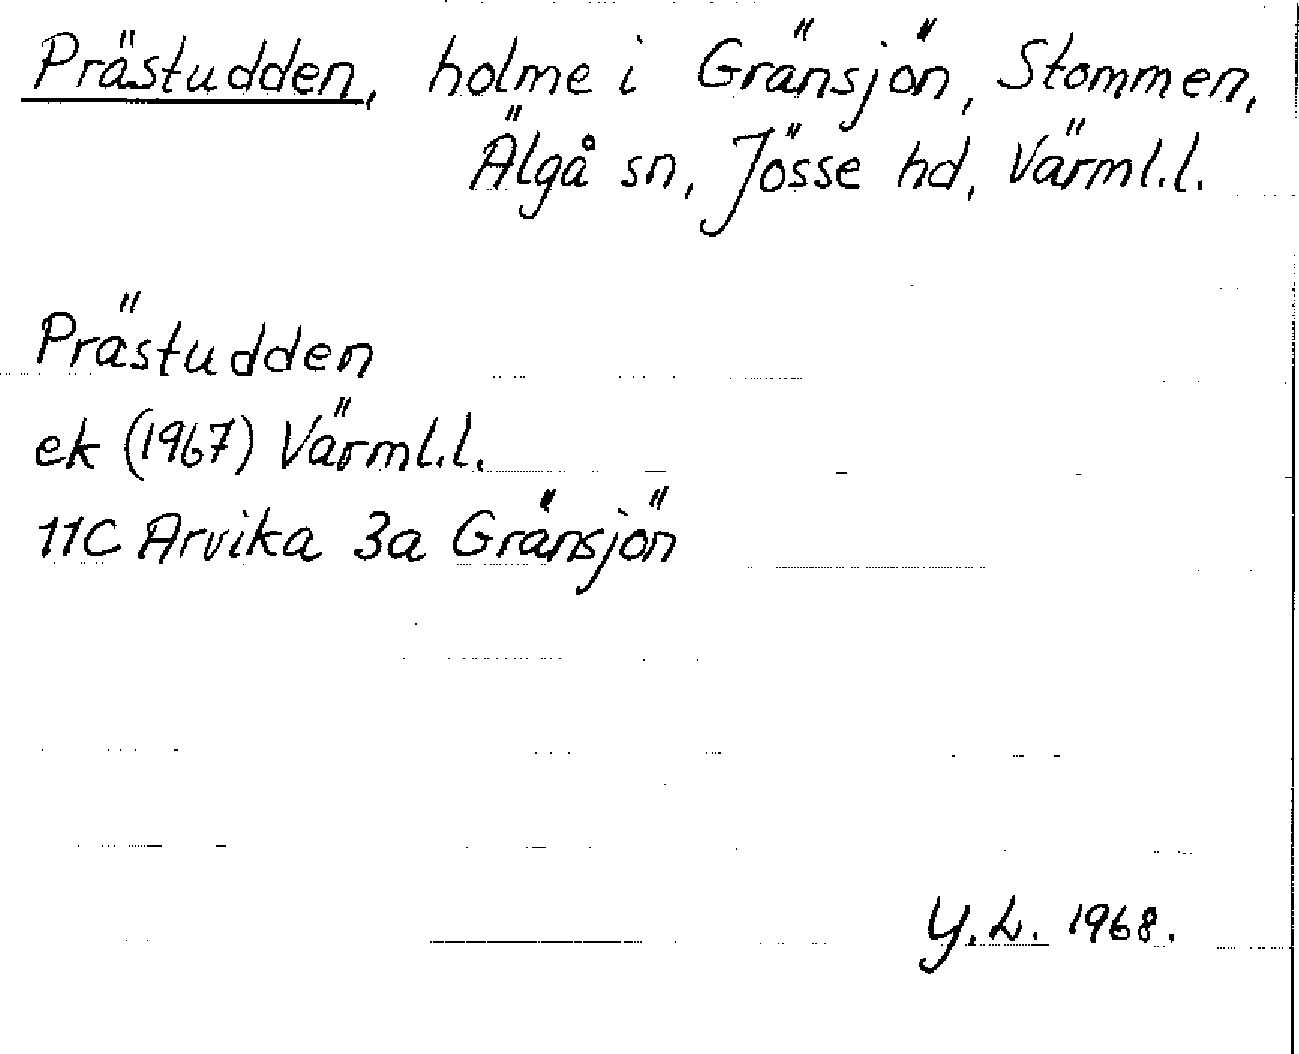 Prästudden, holme i Gränsjön, Stommen,
Älgå sn, Jösse hd, Värml.l.
Prästudden
ek (1967) Värml.l.
11C Arvika 3a Gränsjön
Y.L. 1968.